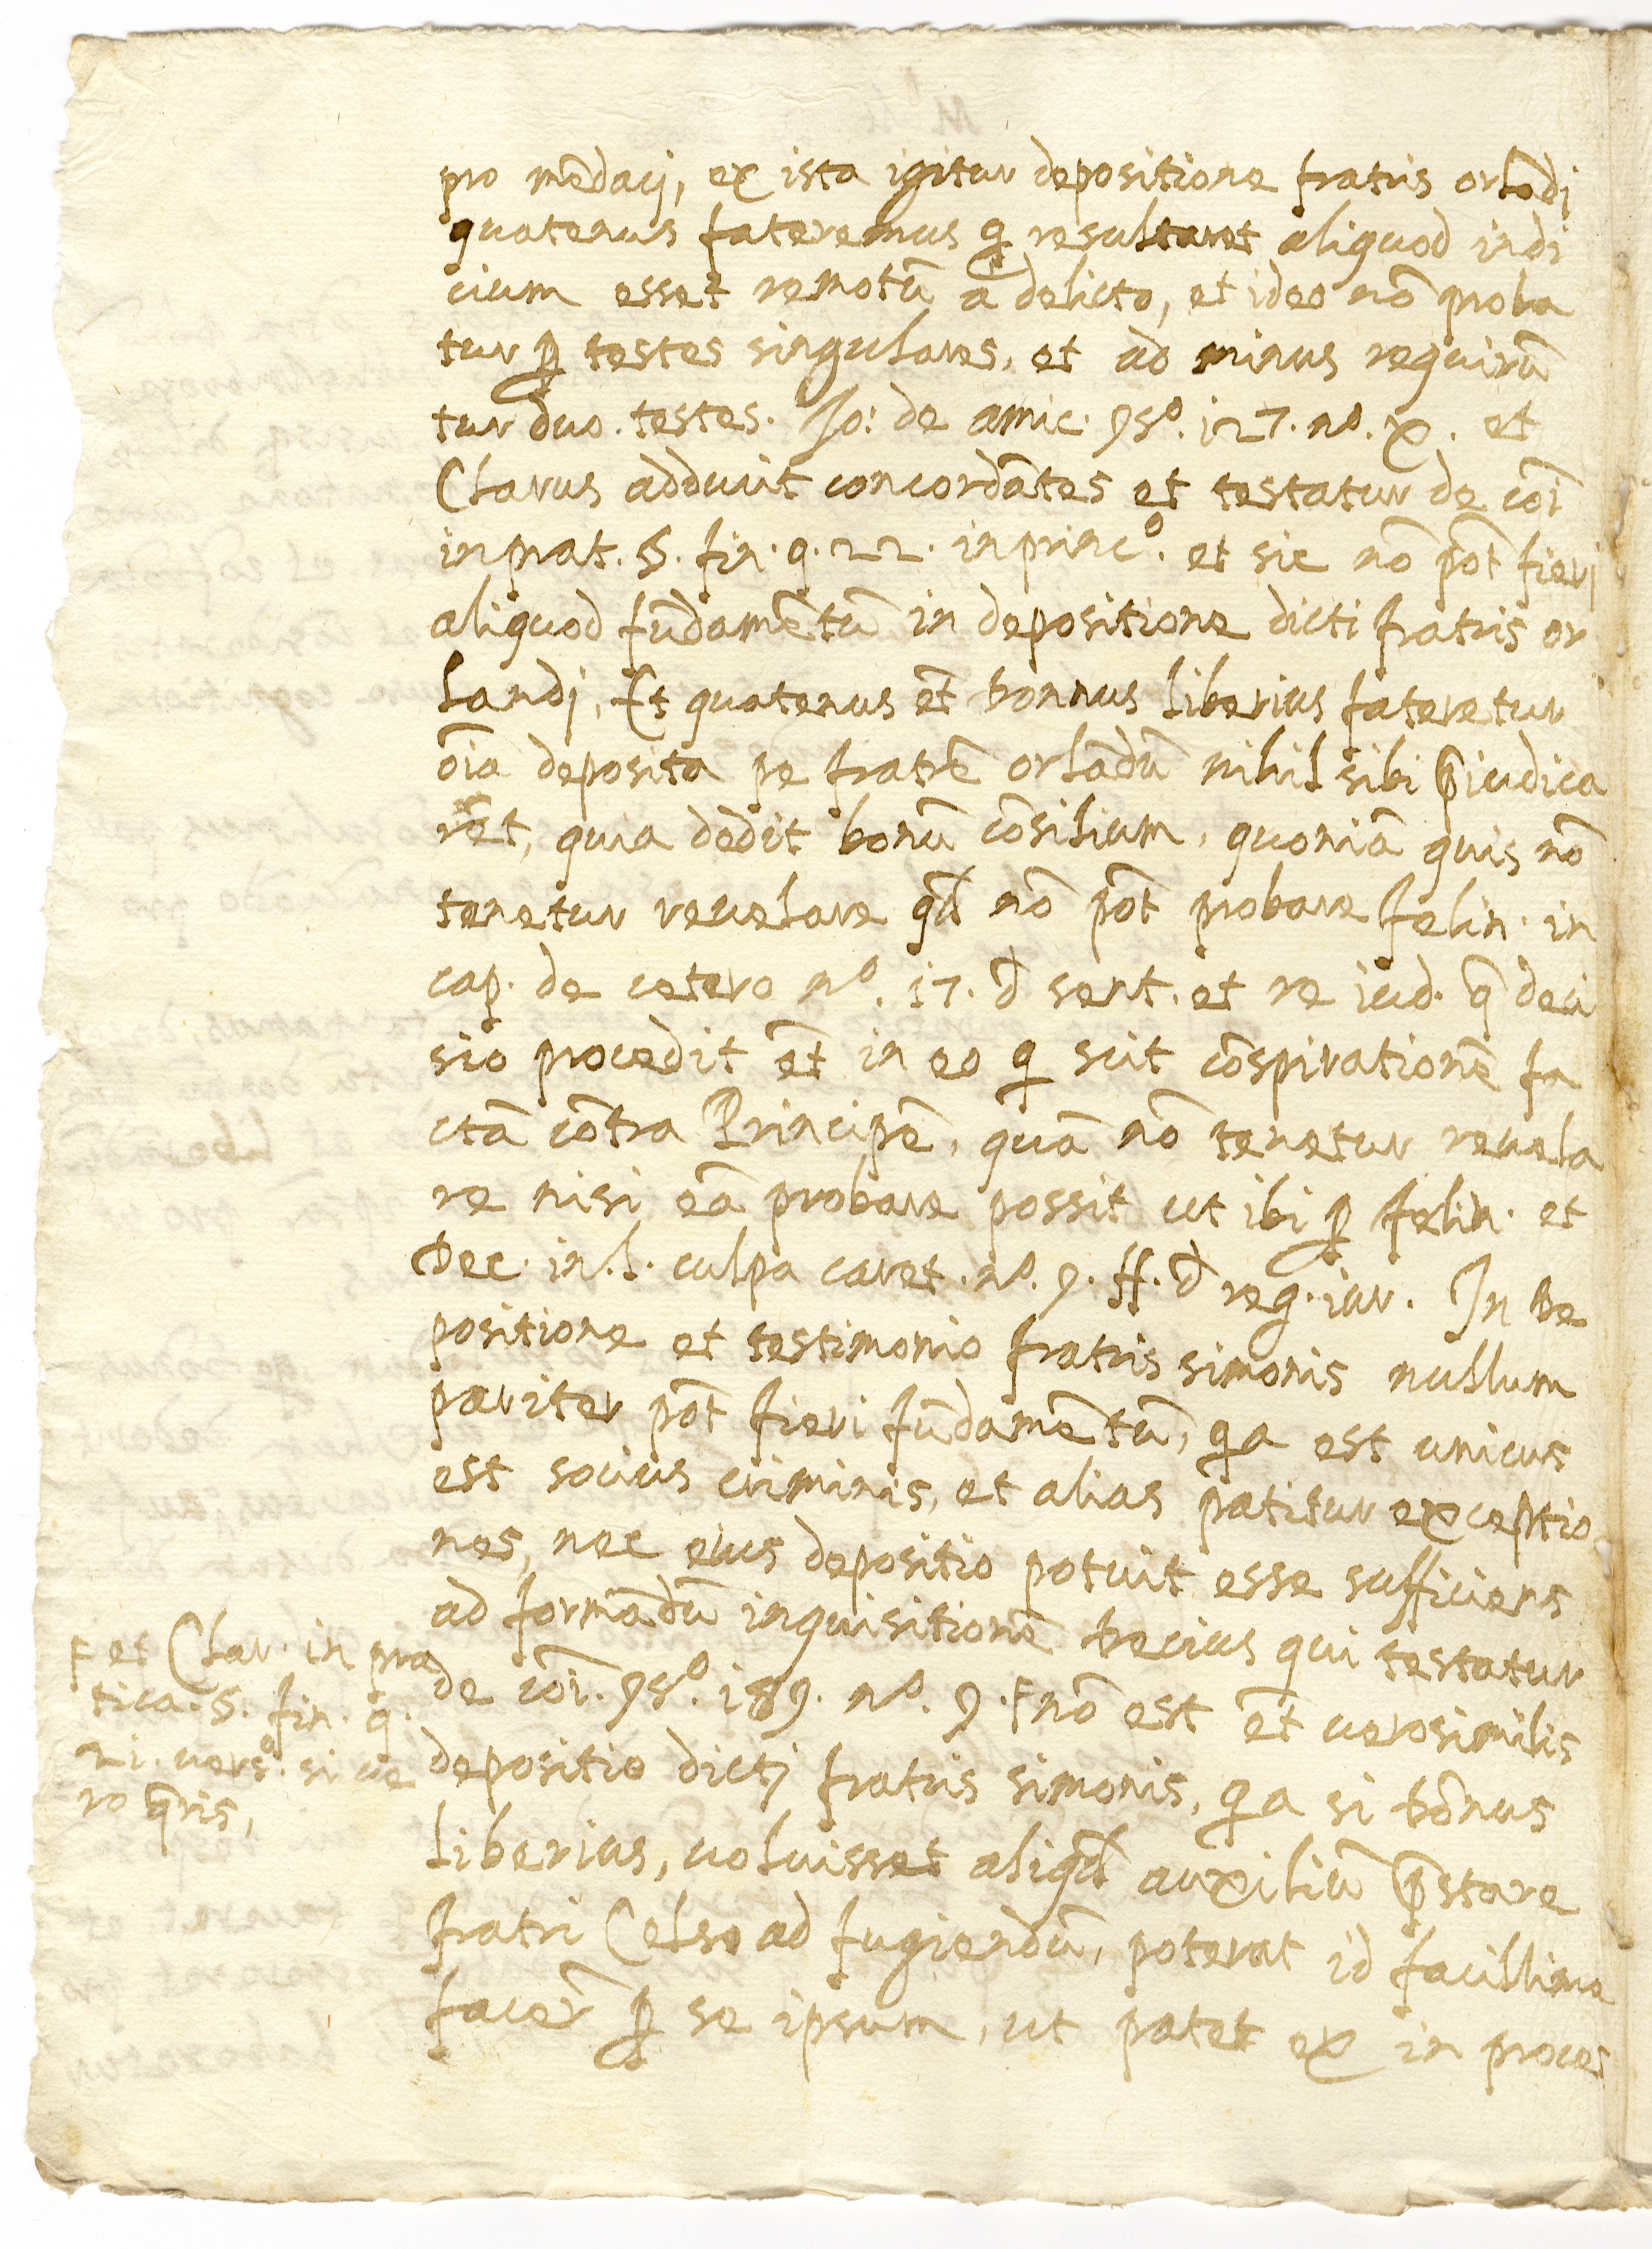 pro mēdacij, ex ista igitur depositione fratris orlādj
quatenus fateremus ꝙ resultaret aliquod indi
cium esset remotū a delicto, et ideo nō proba
tur ꝑ testes singulares, et ad minus requirū
tur duo. testes. Jo: de amic. ꝯsº. 127. nº. x. et
Clarus adducit concordātes et testatur de cōi
in prat. §. fin. q. 22. in princº. et sic nō pōt fierj
aliquod fūdamētū in depositione dicti fratris or
landj, Et quatenus ēt Donnus liberius fateretur
oīa deposita pe fratrē orlādū nihil sibi p̄iudica
rēt, quia dedit bonū cōsilium, quoniā quis nō
tenetur reuelare qd̄ nō pōt probare felin. in
cap. de cetero nº. 17. đ sent. et re iud. q̄ deci
sio procedit ēt in eo ꝗ scit cōspirationē fa
ctā cōtra Principē, quā nō tenetur reuela
re nisi eā probare possit ut ibi ꝑ felin. et
Dec. in. l. culpa caret. nº. 9. ff. đ reg. iur. In de
positione et testimonio fratris simonis nullum
pariter pōt fieri fūdamētū, ꝗa est unicus
est socius criminis, et alias patitur exceptio
nes, nec eius depositio potuit esse sufficiens
ad formādū inquisitionē Decius qui testatur
de cōi. ꝯsº. 189. nº. 9. F nō est ēt uerosimilis
depositio dictj fratris simonis, ꝗa si Dōnus
liberius, uoluisset aliqd̄ auxiliū p̄stare
fratri Celso ad fugiendū, poterat id facillime
facer̄ ꝑ se ipsum, ut patet ex in proces
F et Clar. in pra
tica. §. fin. q.
21. uersº. si ue
ro q̄ris,